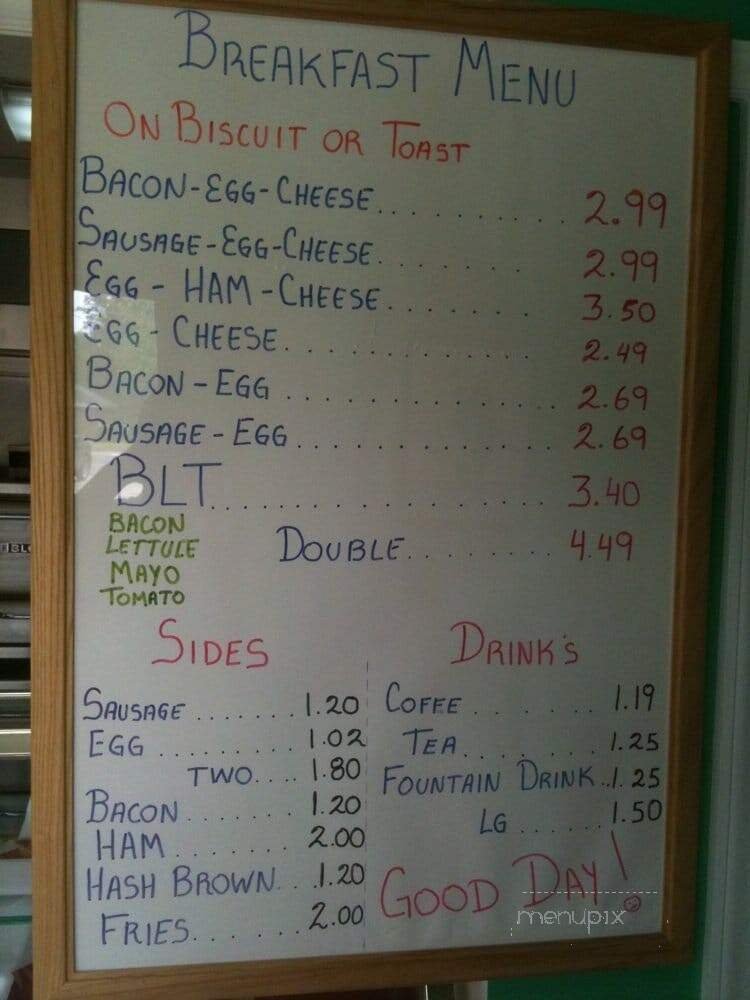 BREAKFAST MENU
ON BISCUIT OR TOAST
BACON-EGG-CHEESE.......... 2.99
SAUSAGE-EGG-CHEESE....... 2.99
EGG - HAM - CHEESE....... 3.50
EGG - CHEESE............. 2.49
BACON - EGG............. 2.69
SAUSAGE - EGG............. 2.69
BLT................... 3.40
BACON
LETTUCE
MAYO
TOMATO
DOUBLE......... 4.49
SIDES
SAUSAGE....... 1.20
EGG.......... 1.02
TWO.... 1.80
BACON....... 1.20
HAM....... 2.00
HASH BROWN...1.20
FRIES....... 2.00
DRINK'S
COFFE....... 1.19
TEA........ 1.25
FOUNTAIN DRINK...1.25
LG...... 1.50
GOOD DAY!
menupix